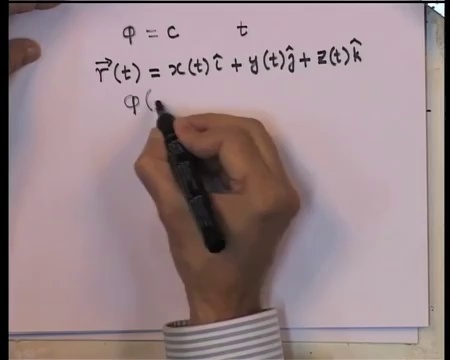 φ = c t
r⃗(t) = x(t) î + y(t) ĵ + z(t) k̂
φ (